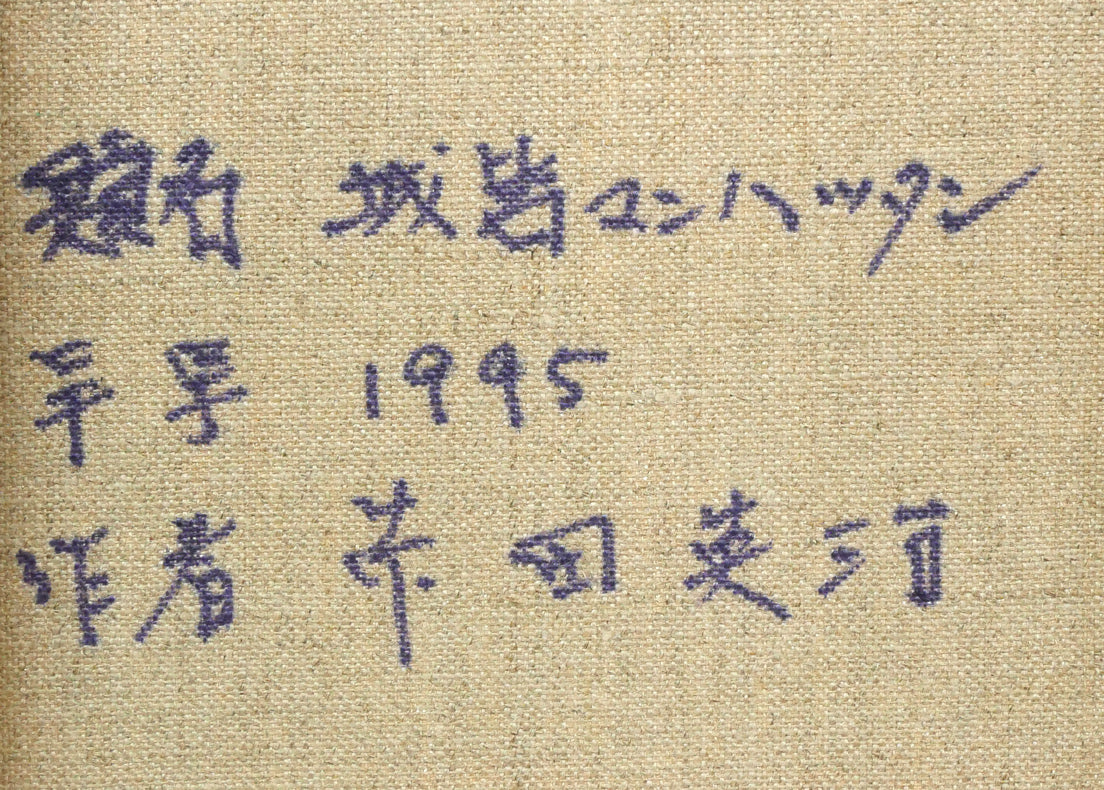 題名 城砦マンハッタン
年号 1995
作者 田英